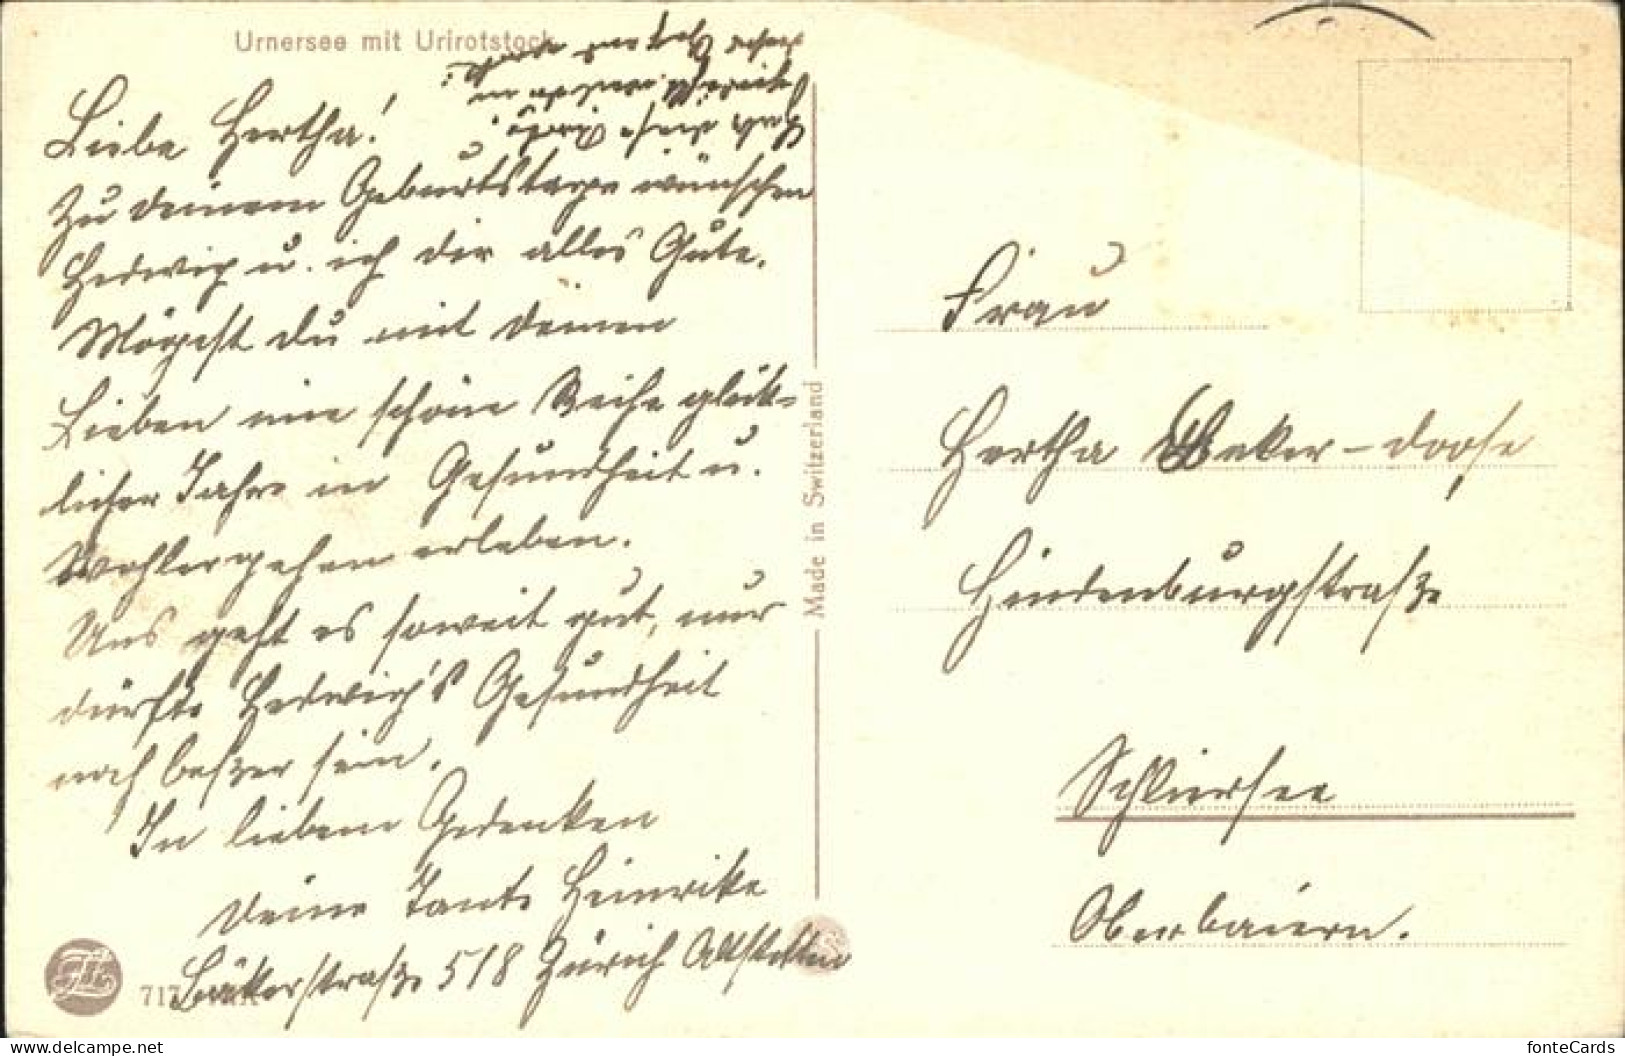 Urnersee mit Urirotstock
Liebe Hertha!
Zu deinem Geburtstage wünschen
Hedwig u. ich dir alles Gute.
Mögest du mit deinen
Lieben eine schöne Reihe glück-
licher Jahre in Gesundheit u.
Wohlergehen erleben.
Uns geht es soweit gut, nur
dürfte Hedwig's Gesundheit
noch beßer sein.
In liebem Gedenken
deine Tante Heinrike
Bäkerstraße 518 Zürich Altstetten
Hab diese Karte
717
Made in Switzerland
Frau
Hertha Beker-doose
Hindenburgstraße
Schliersee
Oberbaiern.
delcampe.net
fonteCards